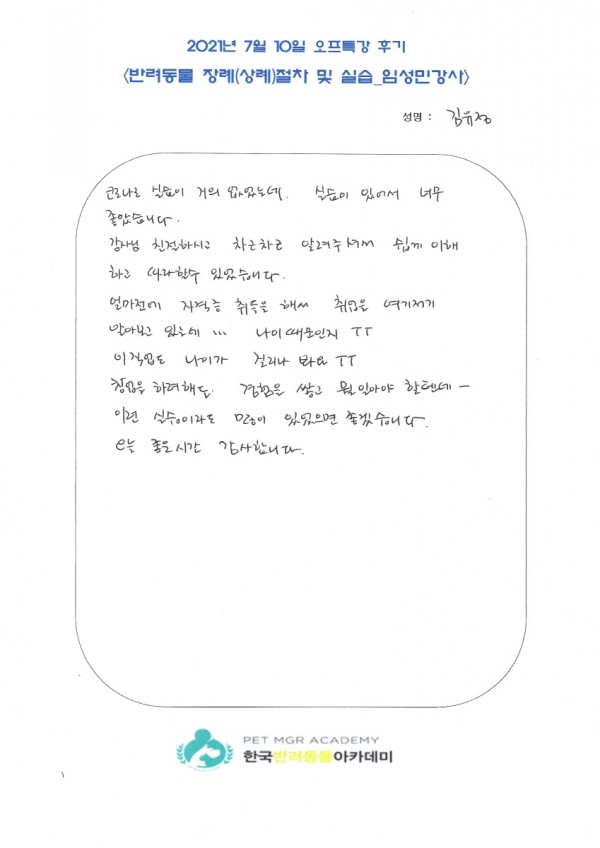 2021년 7월 10일 오프특강 후기
<반려동물 장례(상례)절차 및 실습_임성민강사>
성명 : 김유정
코로나로 실습이 거의 없었는데. 실습이 있어서 너무
좋았습니다.
강사님 친절하시고 차근차근 알려주셔서 쉽게 이해
하고 따라할수 있었습니다.
얼마전에 자격증 취득을 해서 취업을 여기저기
알아보고 있는데 ... 나이때문인지 TT
이직업도 나이가 걸리나 봐요 TT
창업을 하려해도. 경험을 쌓고 뭘 알아야 할텐데 -
이런 실습이라도 많이 있었으면 좋겠습니다.
오늘 좋은시간 감사합니다.
PET MGR ACADEMY
한국반려동물아카데미